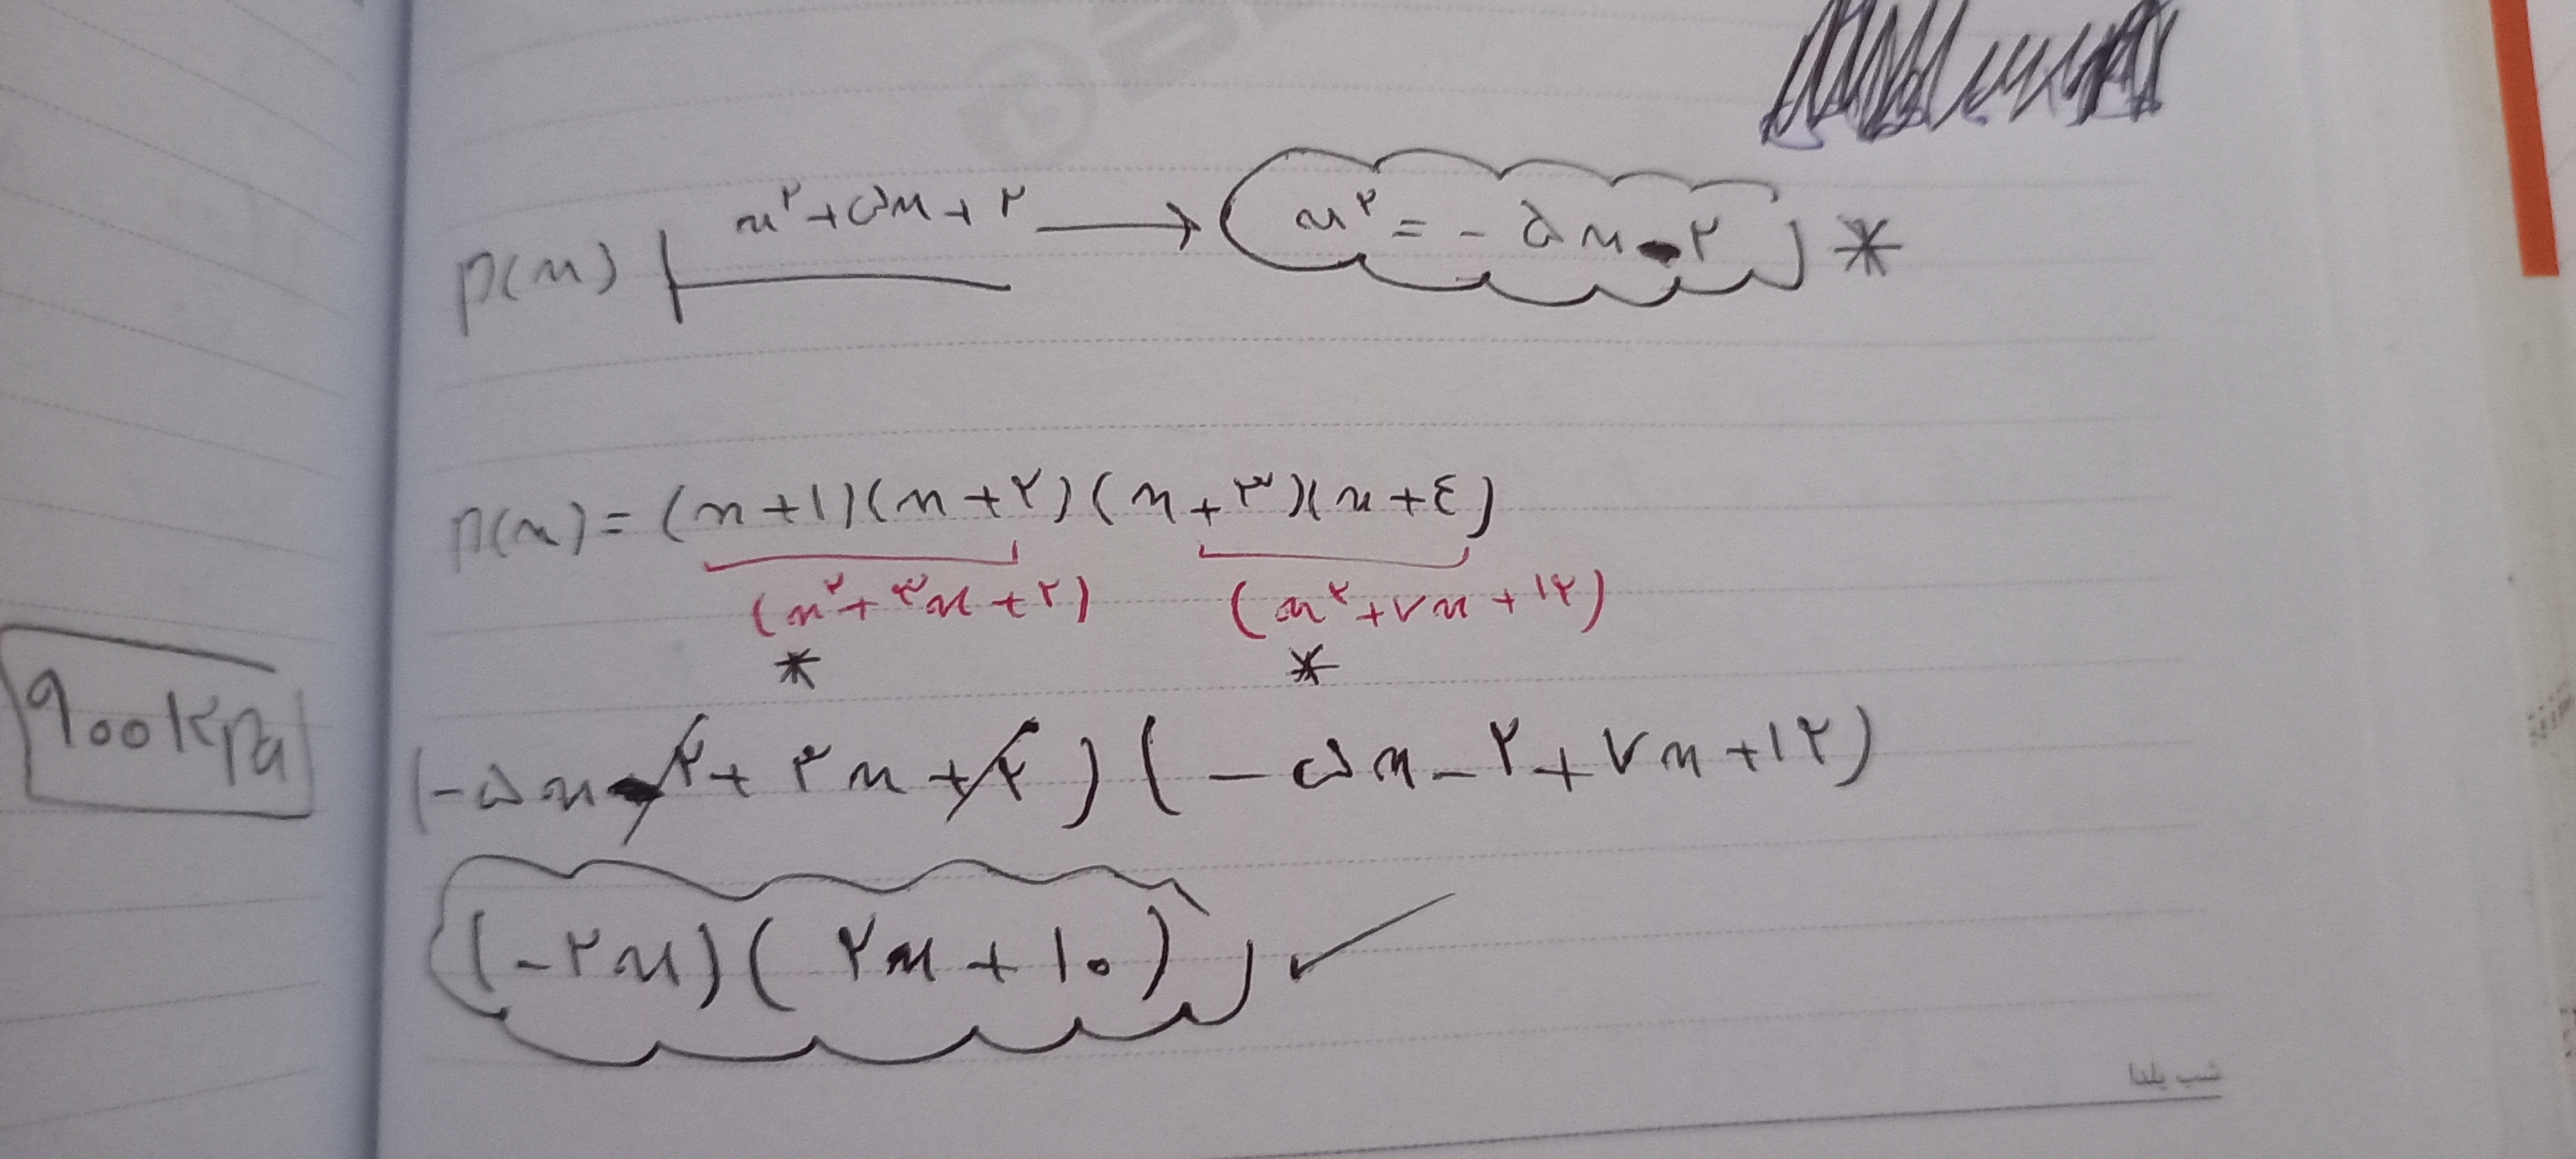 p(x) | x²+۵x+۲ → x² = -۵x-۲ *
p(x) = (x+۱)(x+۲)(x+۳)(x+٤)
(x²+۳x+۲) (x²+۷x+۱۲)
* *
(-۵x-۲+۳x+۲)(-۵x-۲+۷x+۱۲)
(-۲x)(۲x+۱۰) ✓
900kPa
شب یلدا